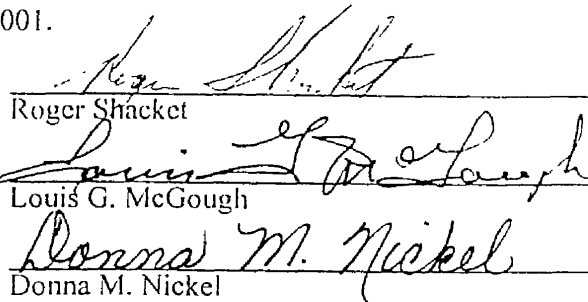 001.
Roger Shacket
Roger Shacket
Louis G. McGough
Louis G. McGough
Donna M. Nickel
Donna M. Nickel